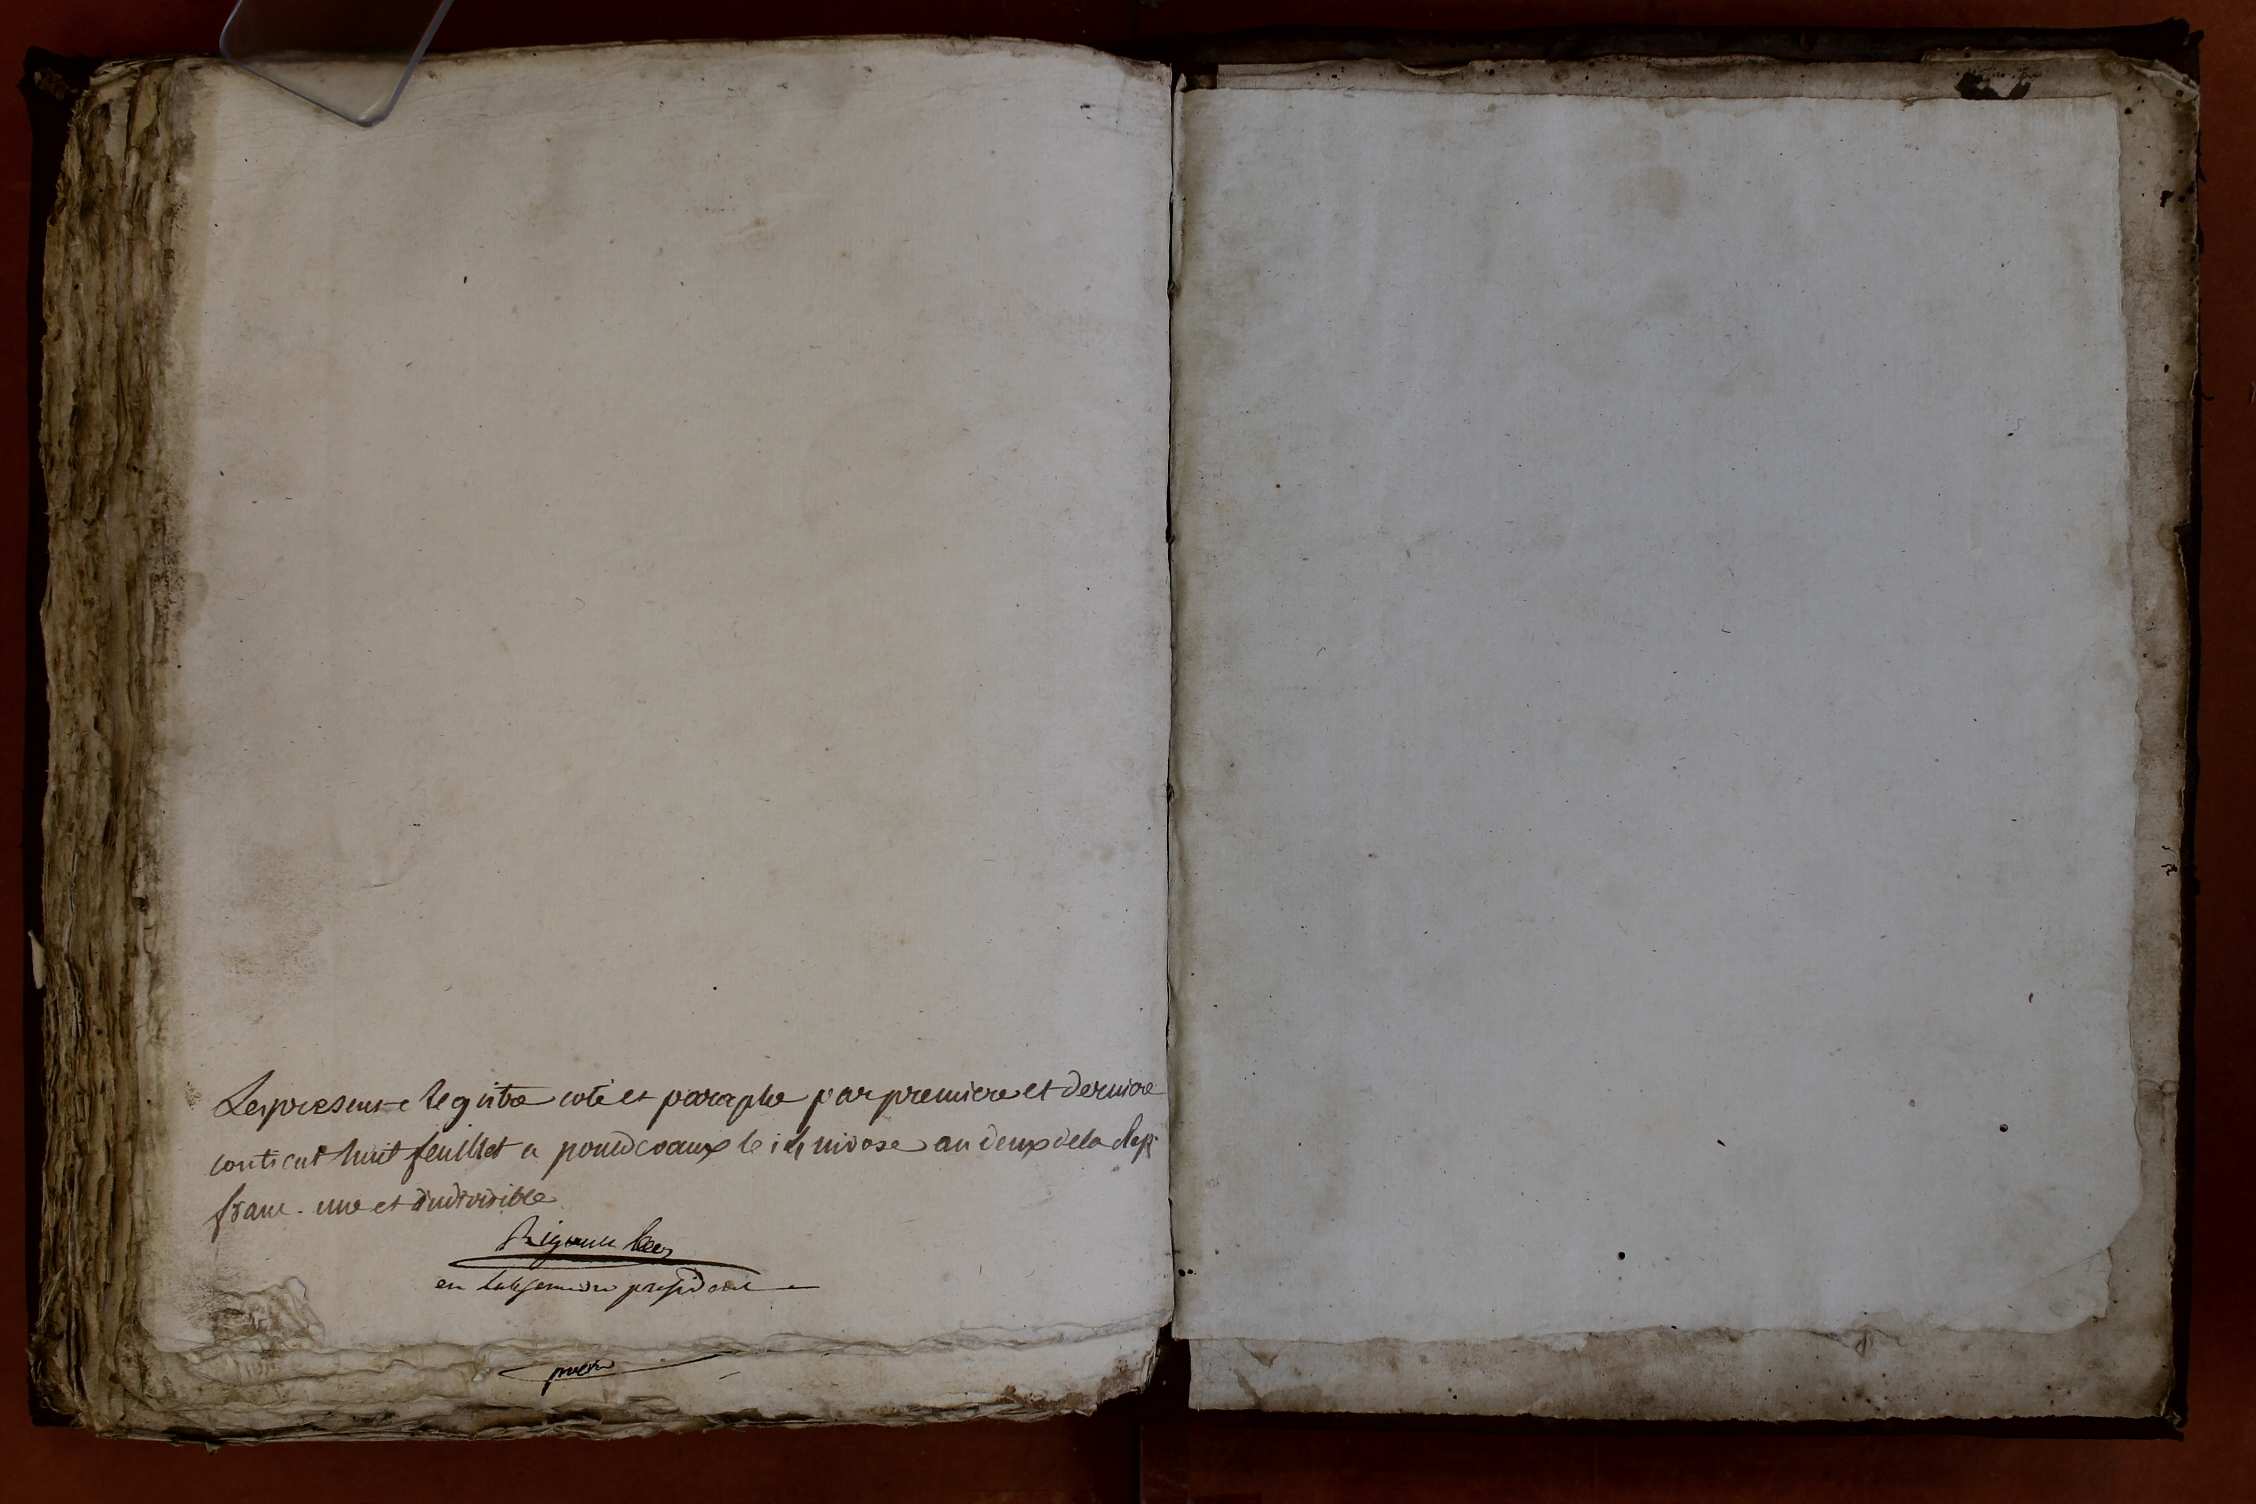 Le present Registre coté et paraphe par premiere et derniere
contient huit feuillet a le 14 nivose an deux de la Rep.
franc. une et indivisible
en president